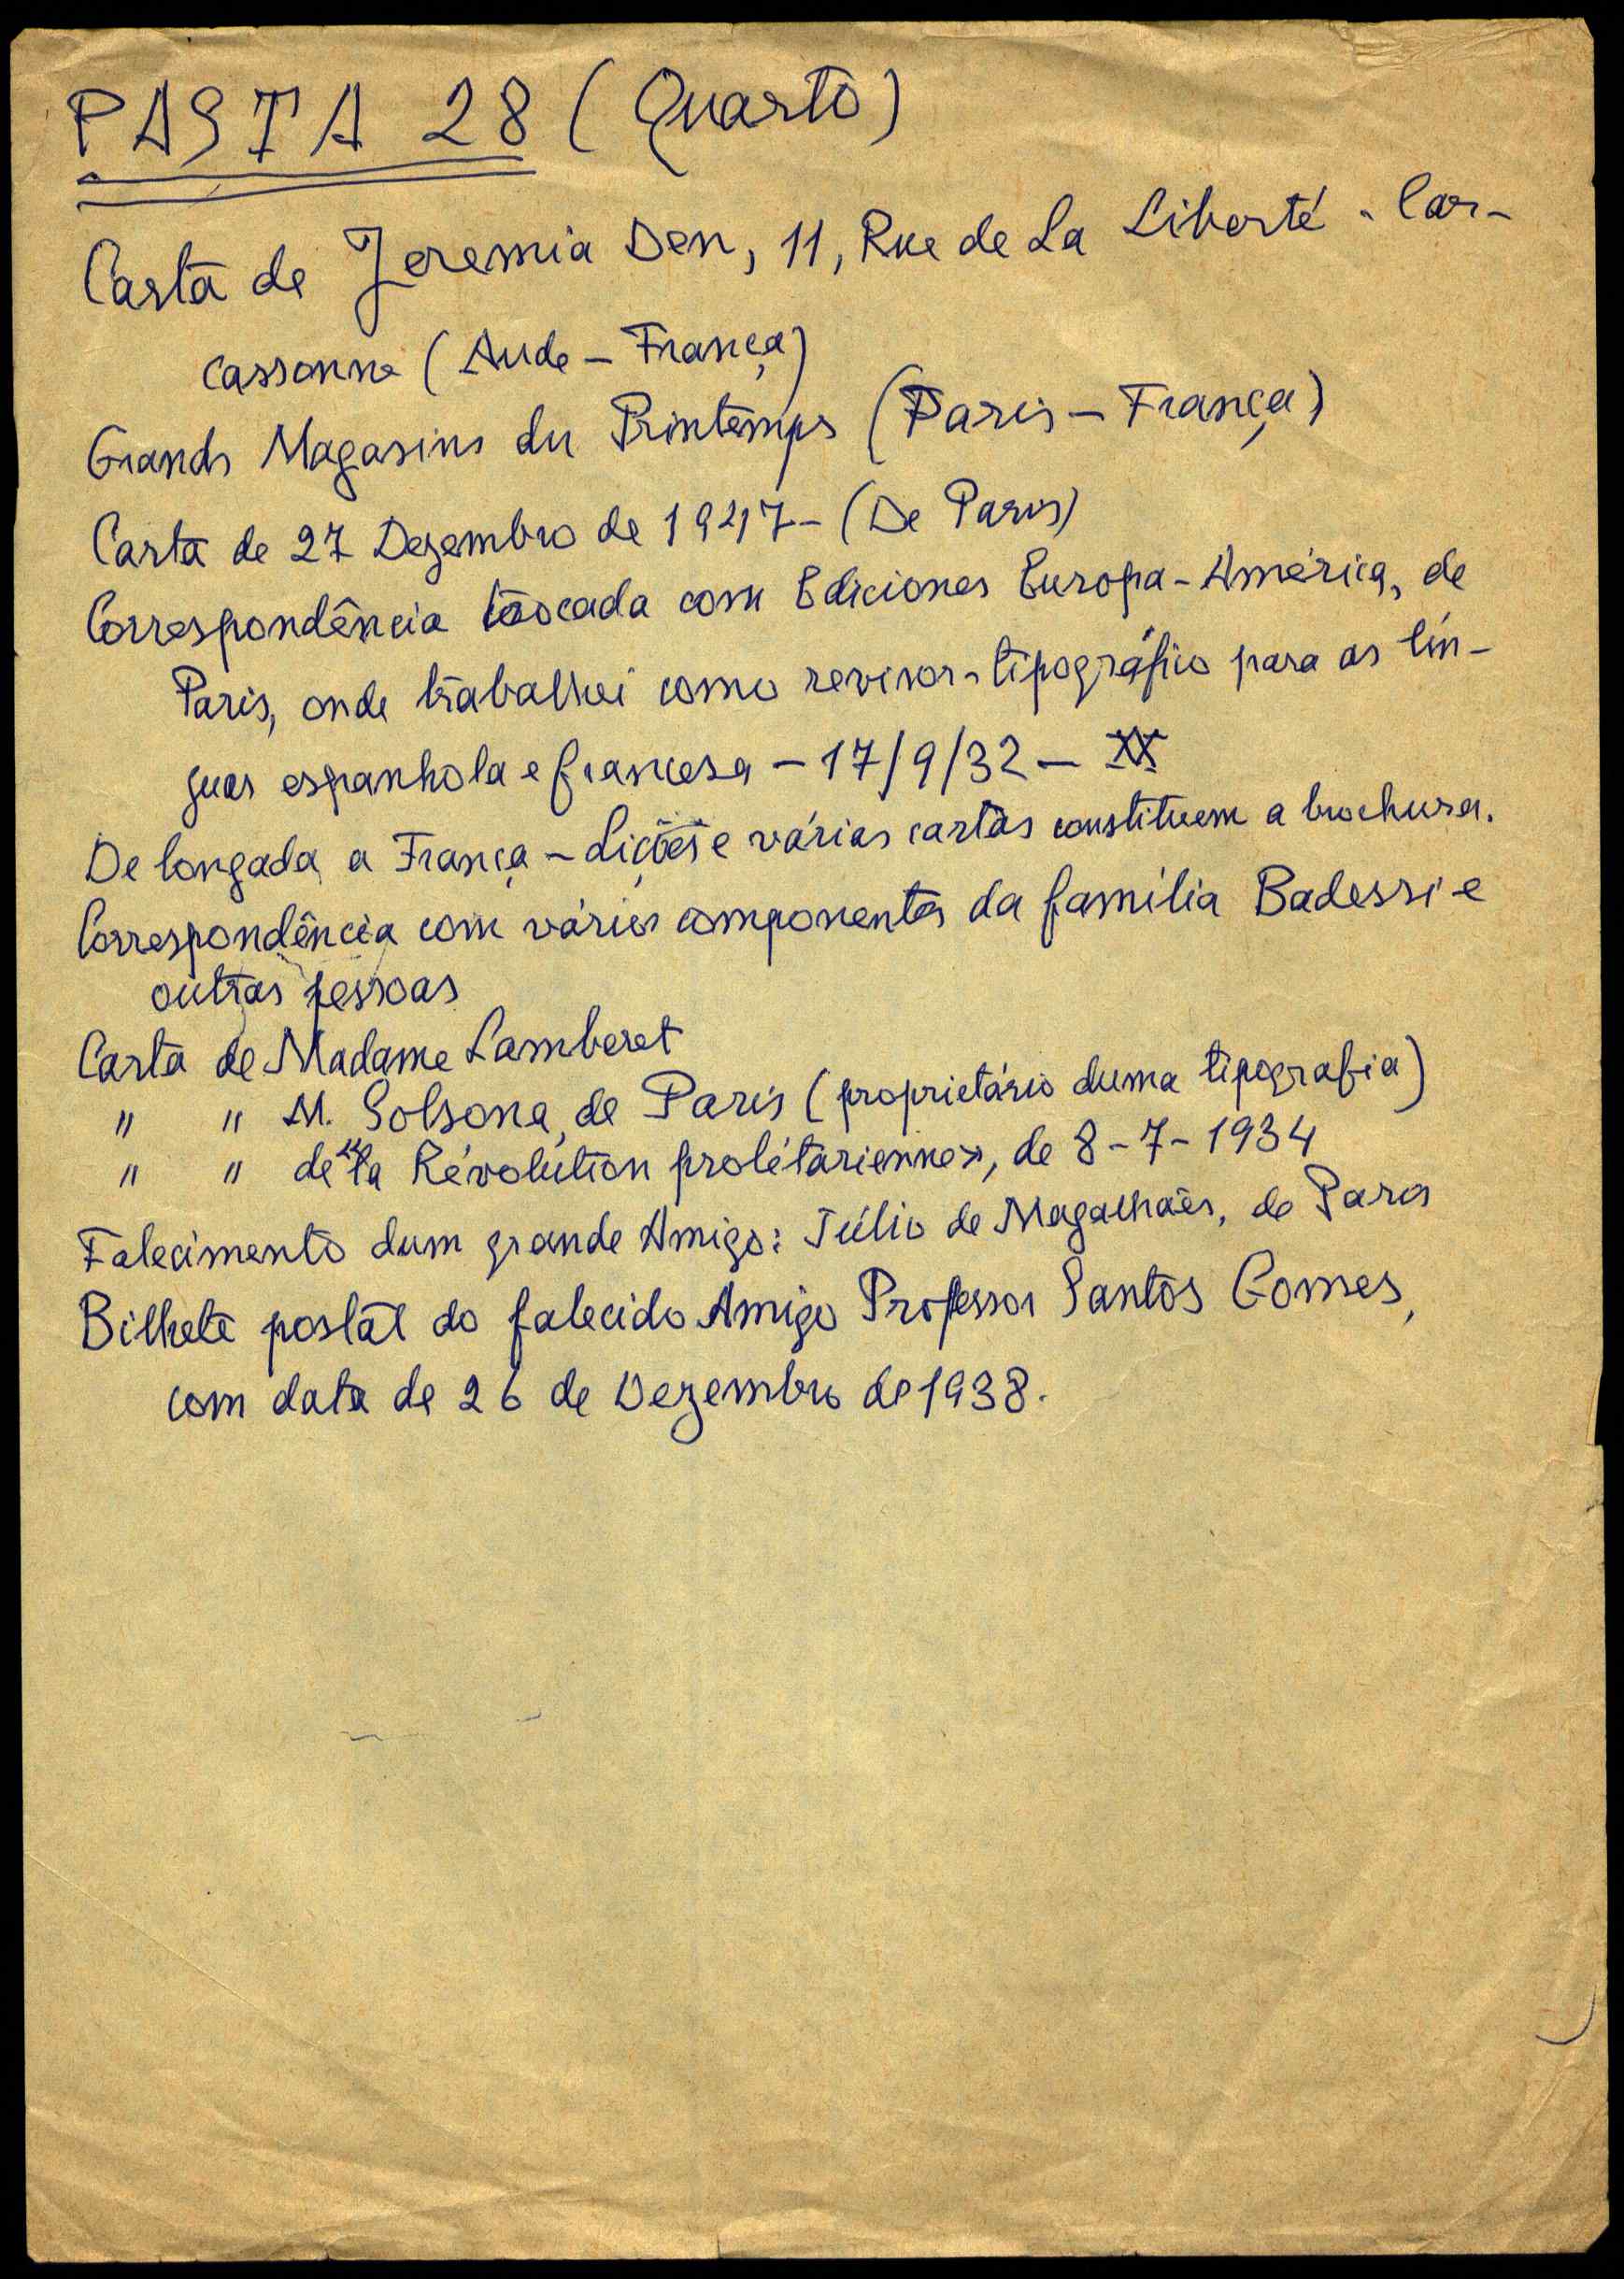 PASTA 28 (Quarto)
Carta de Jeremia Den, 11, Rue de La Liberté - Car-
cassonne (Aude - França)
Grands Magasins du Printemps (Paris - França)
Carta de 27 Dezembro de 1947 - (De Paris)
Correspondência trocada com Ediciones Europa-América, de
Paris, onde trabalhei como revisor-tipográfico para as lín-
guas espanhola e francesa - 17/9/32 -
De longada a França - Lições e várias cartas constituem a brochura.
Correspondência com vários componentes da família Badessi e
outras pessoas
Carta de Madame Lamberet
" " M. Solsona, de Paris (proprietário duma tipografia)
" " de "la Révolution prolétarienne», de 8-7-1934
Falecimento dum grande Amigo: Júlio de Magalhães, de Paris
Bilhete postal do falecido Amigo Professor Santos Gomes,
com data de 26 de Dezembro de 1938.